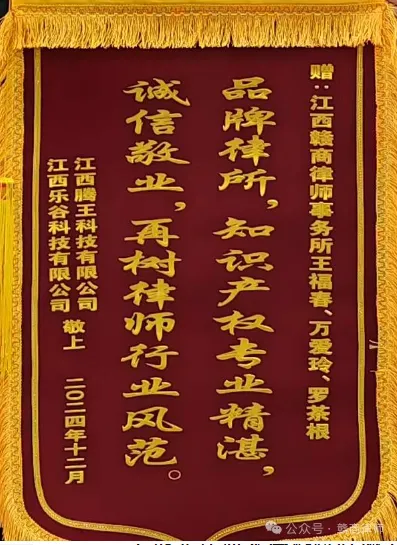 赠：江西赣商律师事务所王福春、万爱玲、罗茶根
品牌律所，知识产权专业精湛，
诚信敬业，再树律师行业风范。
江西腾王科技有限公司
江西乐谷科技有限公司
敬上
二〇二四年十二月
公众号·赣商律师